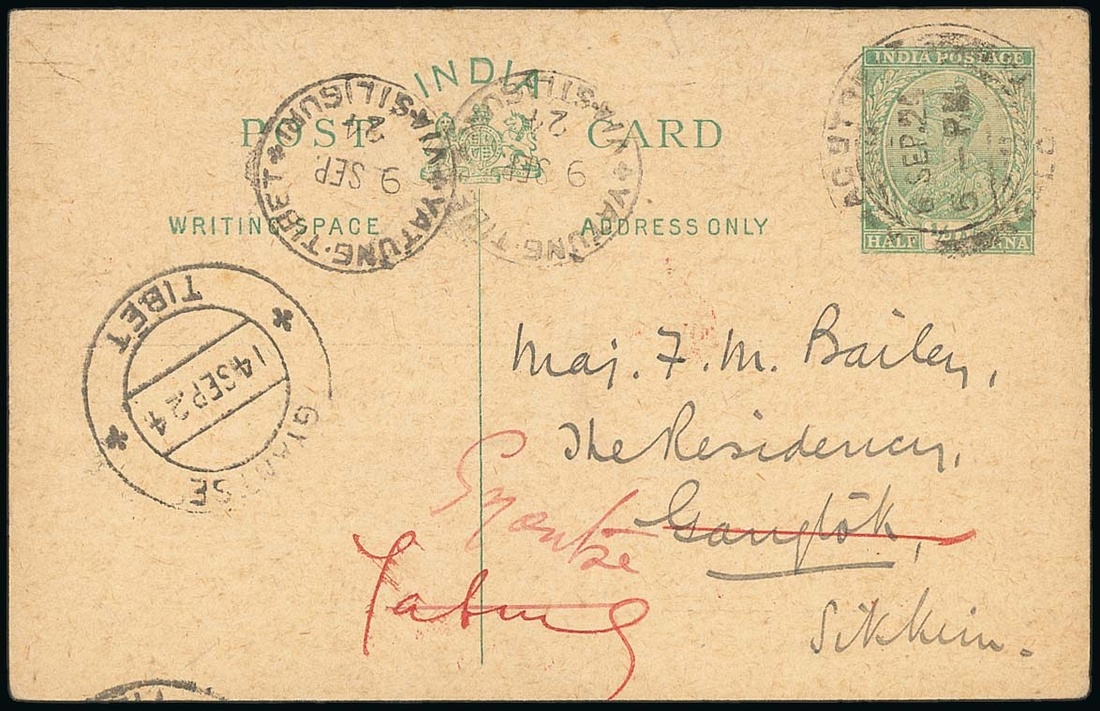 INDIA
POST CARD
WRITING SPACE
ADDRESS ONLY
INDIA POSTAGE
HALF ANNA
SEP. 24
5 - PM
YATUNG·TIBET
VIA·SILIGURI
9 SEP.
24
YATUNG·TIBET
VIA·SILIGURI
9 SEP.
24
GYANTSE
TIBET
14 SEP 24
Maj. F. M. Bailey,
The Residency,
Gangtok,
Sikkim.
Gyantse
Yatung